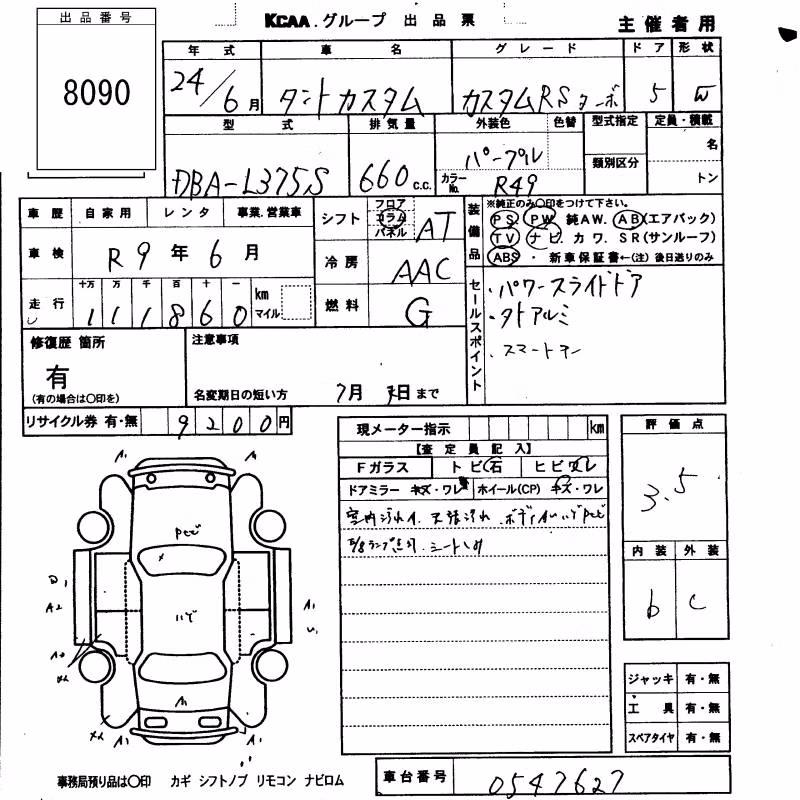 出品番号
8090
KCAA.グループ 出品票
主催者用
年式 車名 グレード ドア 形状
24/6月 タントカスタム カスタムRSターボ 5 W
型式 排気量 外装色 色替 型式指定 定員・積載
DBA-L375S 660c.c. パープル 類別区分 名
カラーNo. R49 トン
車歴 自家用 レンタ 事業.営業車
車検 R9年6月
走行 十万 万 千 百 十 一
111860 km マイル
シフト フロア コラム パネル AT
冷房 AAC
燃料 G
装備品 ※純正のみ○印をつけて下さい。
PS PW 純AW. AB(エアバック)
TV ナビ. カワ. SR(サンルーフ)
ABS ・ 新車保証書←(注)後日送りのみ
セールスポイント
・パワースライドドア
・社外アルミ
・スマートキー
修復歴 箇所
有
(有の場合は○印を)
注意事項
名変期日の短い方 7月 日まで
リサイクル券 有・無 9200円
現メーター指示 km
【査定員記入】
Fガラス トビ石 ヒビワレ
ドアミラー キズ・ワレ ホイール(CP) キズ・ワレ
室内汚れ 天張汚れ ボディ
ランプ点灯.シート
評価点
3.5
内装 外装
b c
A1
A1
D1
A2
A1
U1
A1
A1
ジャッキ 有・無
工具 有・無
スペアタイヤ 有・無
事務局預り品は○印 カギ シフトノブ リモコン ナビロム
車台番号 0547627